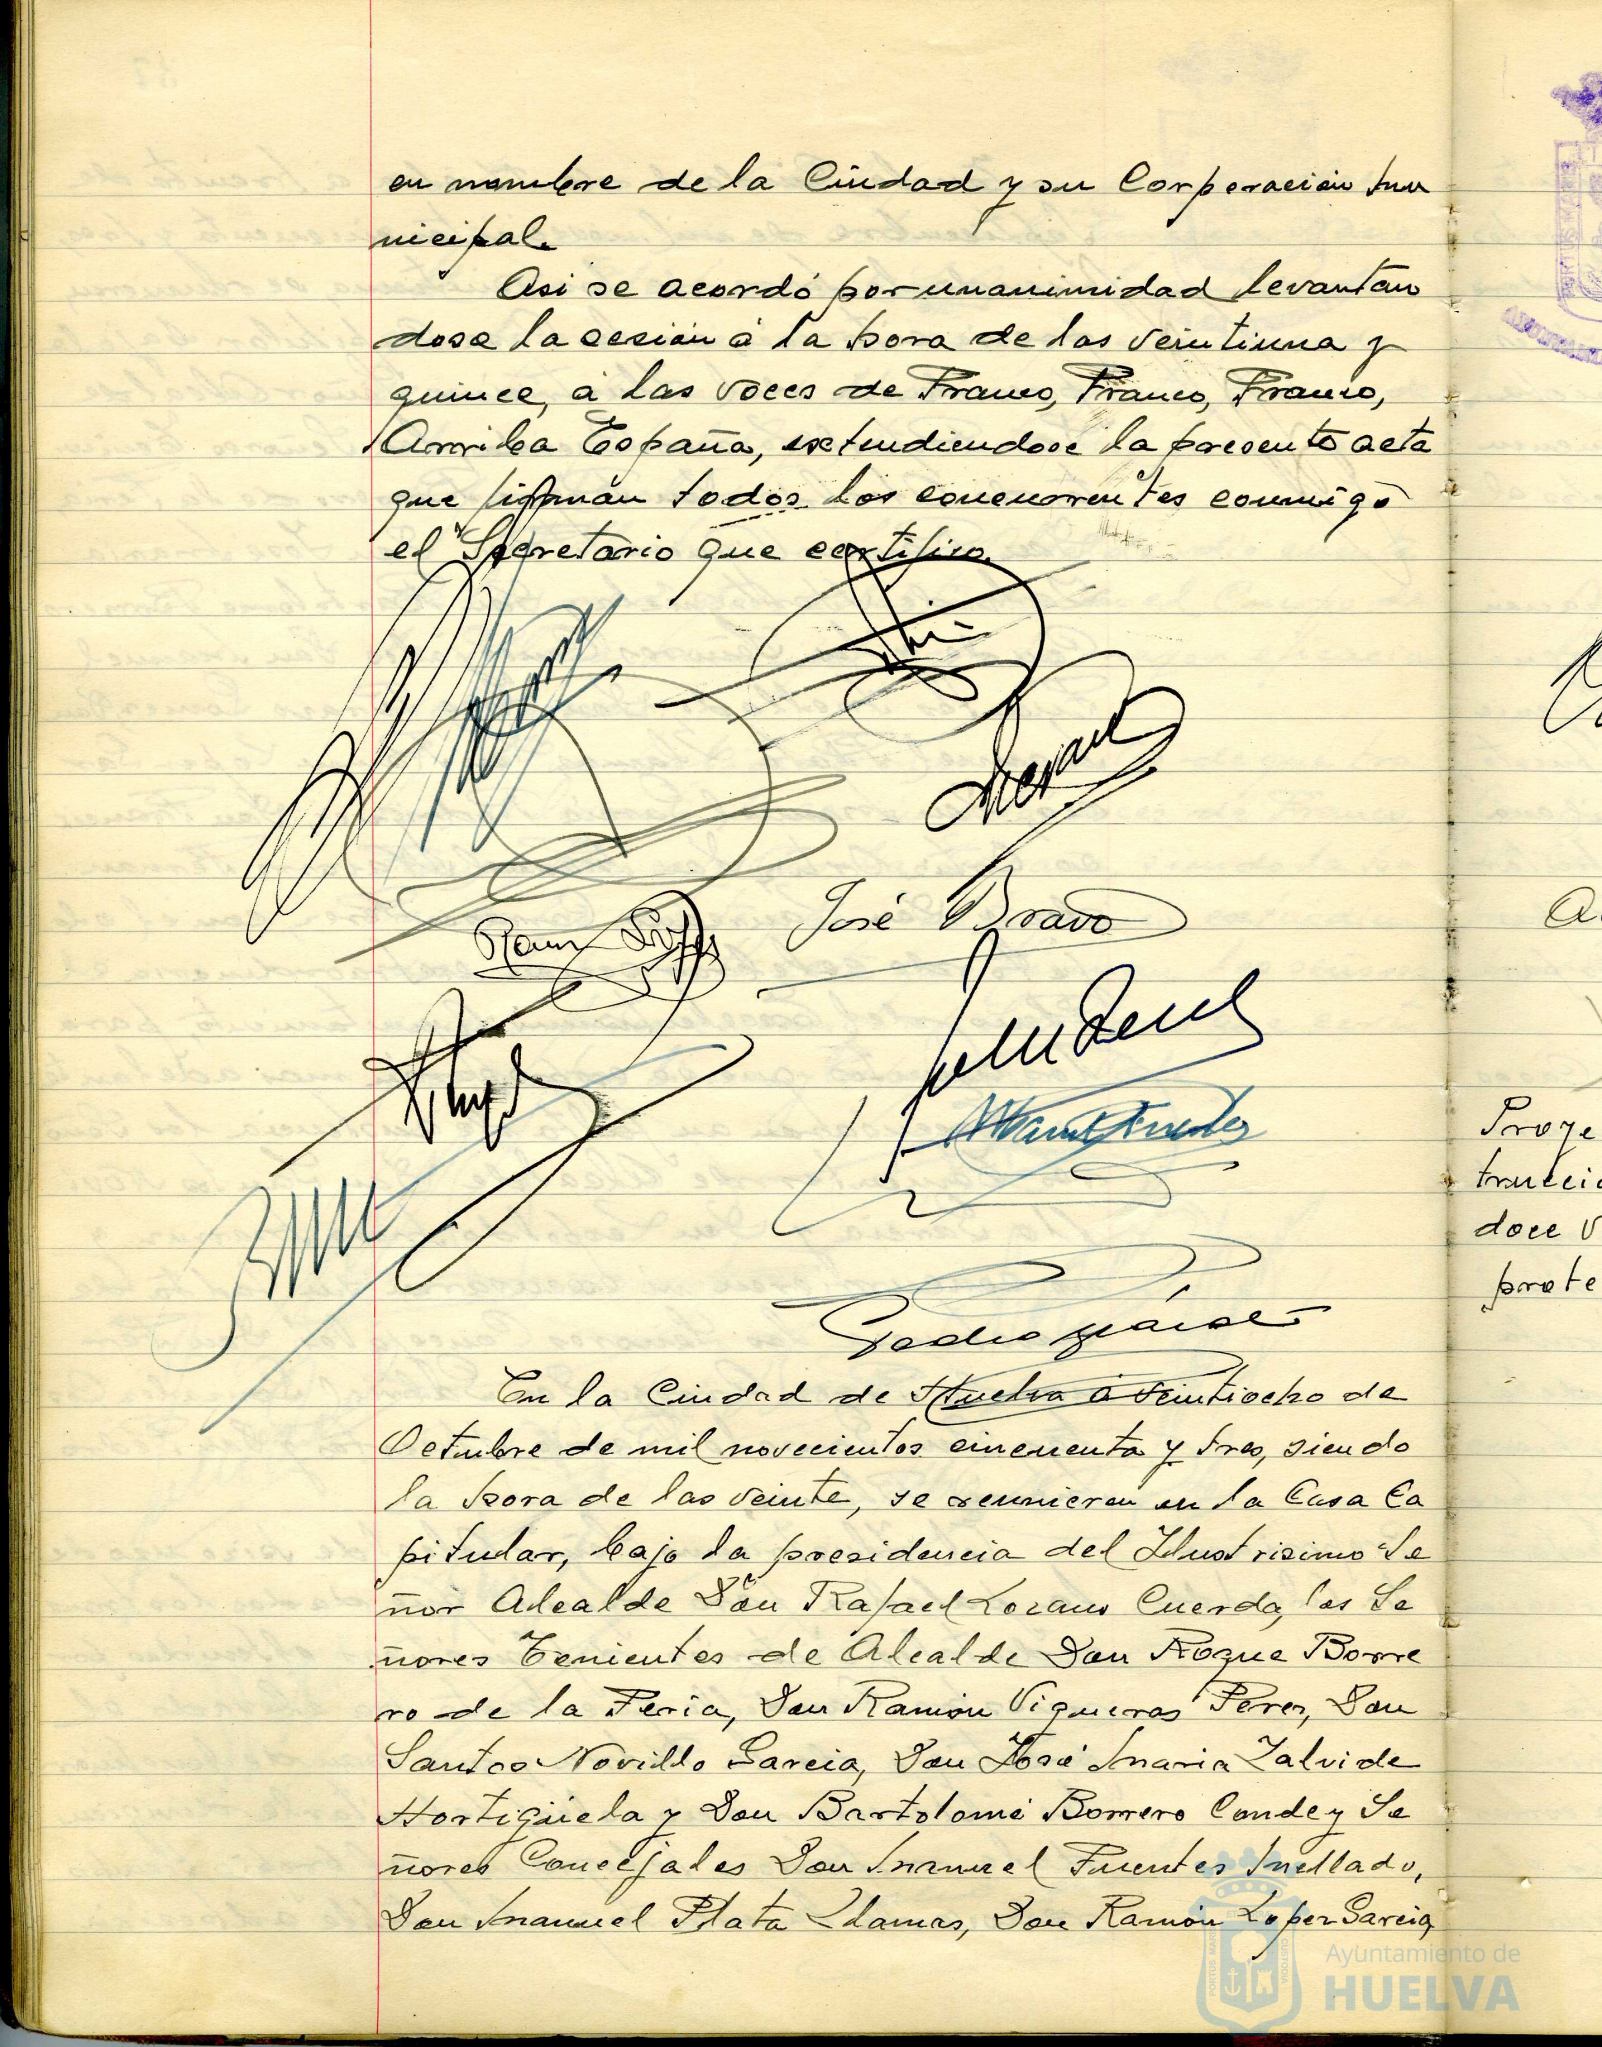 en nombre de la Ciudad y su Corporación Mu
nicipal.
Asi se acordó por unanimidad levantan
dose la sesión á la hora de las veintiuna y
quince, á las voces de Franco, Franco, Franco,
Arriba España, extendiendose la presente acta
que firman todos los concurrentes conmigo
el Secretario que certifico.
José Bravo
En la Ciudad de Huelva á veintiocho de
Octubre de mil novecientos cincuenta y tres, siendo
la hora de las veinte, se reunieron en la Casa Ca
pitular, bajo la presidencia del Ilustrisimo Se
ñor Alcalde Don Rafael Lozano Cuerda, los Se
ñores Tenientes de Alcalde Don Roque Borre
ro de la Feria, Don Ramón Vigueras Perez, Don
Santos Novillo Garcia, Don José Maria Zalvide
Hortigüela y Don Bartolomé Borrero Conde y Se
ñores Concejales Don Manuel Fuentes Mellado,
Don Manuel Plata Llamas, Don Ramón Lopez Garcia,
Proye
trucció
doce v
prote
Ayuntamiento de
HUELVA